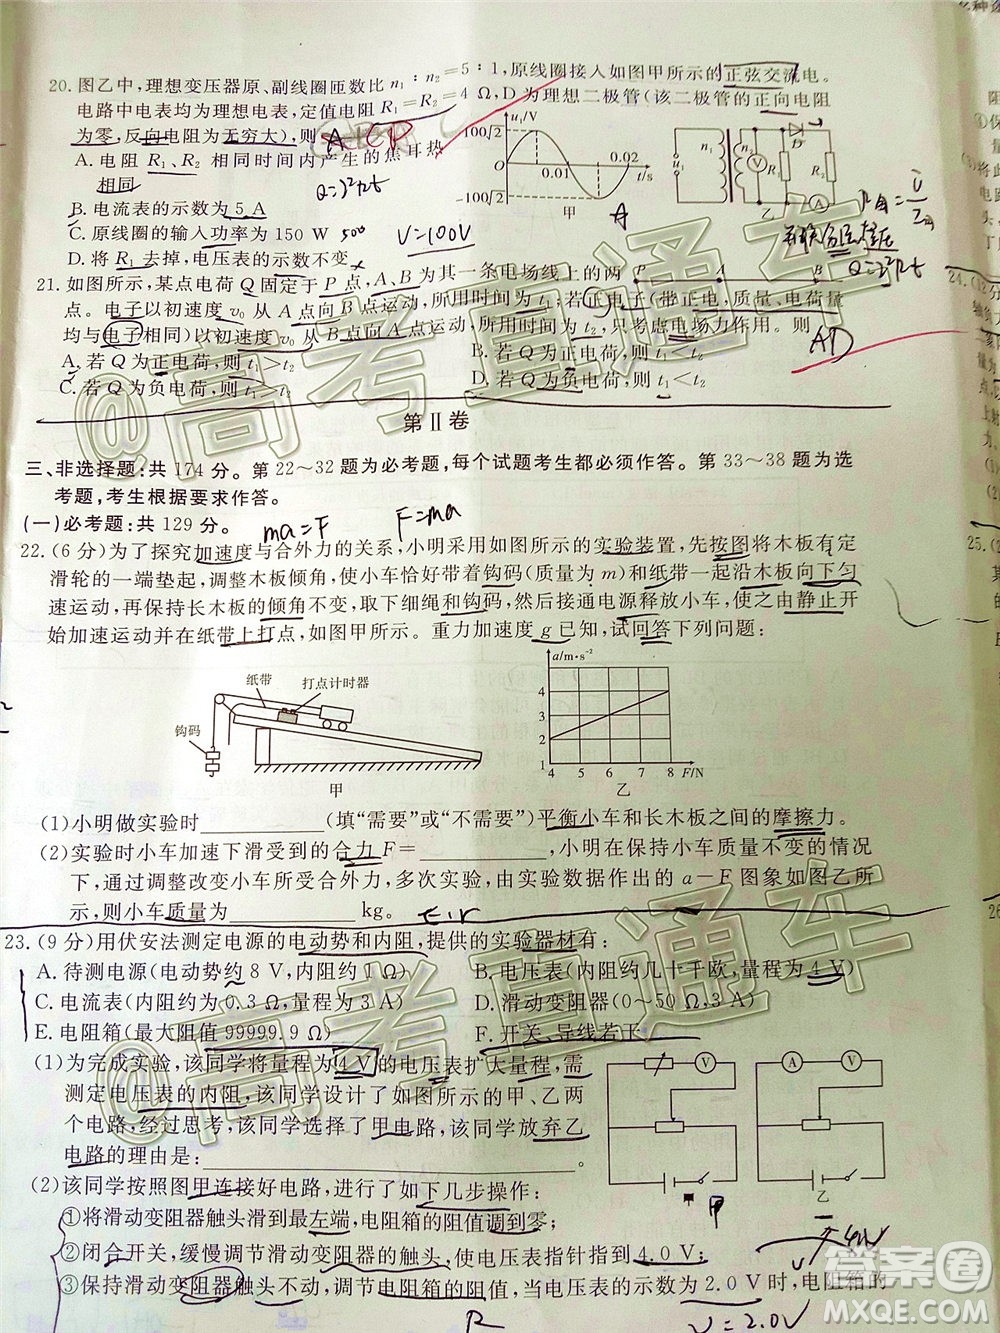 20. 图乙中,理想变压器原、副线圈匝数比 n₁ : n₂ = 5 : 1,原线圈接入如图甲所示的正弦交流电。
电路中电表均为理想电表,定值电阻 R₁=R₂=4 Ω,D为理想二极管(该二极管的正向电阻
为零,反向电阻为无穷大),则
A. 电阻 R₁、R₂ 相同时间内产生的焦耳热
相同
Q=I²Rt
B. 电流表的示数为 5 A
C. 原线圈的输入功率为 150 W
500
V=100V
D. 将 R₁ 去掉,电压表的示数不变
u₁/V
100√2
O
-100√2
0.01
0.02
t/s
甲
A
u₁
n₁
n₂
V
R₁
D
R₂
A
乙
Q=I²Rt
21. 如图所示,某点电荷 Q 固定于 P 点,A、B 为其一条电场线上的两
P A B
点。电子以初速度 v₀ 从 A 点向 B 点运动,所用时间为 t₁;若正电子(带正电,质量、电荷量
均与电子相同)以初速度 v₀ 从 B 点向 A 点运动,所用时间为 t₂,只考虑电场力作用。则
AD
A. 若 Q 为正电荷,则 t₁>t₂
B. 若 Q 为正电荷,则 t₁=t₂
C. 若 Q 为负电荷,则 t₁>t₂
D. 若 Q 为负电荷,则 t₁<t₂
第Ⅱ卷
三、非选择题:共 174 分。第 22~32 题为必考题,每个试题考生都必须作答。第 33~38 题为选
考题,考生根据要求作答。
(一)必考题:共 129 分。
ma=F
F=ma
22. (6 分)为了探究加速度与合外力的关系,小明采用如图所示的实验装置,先按图将木板有定
滑轮的一端垫起,调整木板倾角,使小车恰好带着钩码(质量为 m)和纸带一起沿木板向下匀
速运动,再保持长木板的倾角不变,取下细绳和钩码,然后接通电源释放小车,使之由静止开
始加速运动并在纸带上打点,如图甲所示。重力加速度 g 已知,试回答下列问题:
纸带
打点计时器
钩码
甲
a/m·s⁻²
4
3
2
1
4 5 6 7 8 F/N
乙
(1)小明做实验时____________(填“需要”或“不需要”)平衡小车和长木板之间的摩擦力。
(2)实验时小车加速下滑受到的合力 F=____________,小明在保持小车质量不变的情况
下,通过调整改变小车所受合外力,多次实验,由实验数据作出的 a-F 图象如图乙所
示,则小车质量为____________kg。
E、r
23. (9 分)用伏安法测定电源的电动势和内阻,提供的实验器材有:
A. 待测电源(电动势约 8 V,内阻约 1 Ω)
B. 电压表(内阻约几十千欧,量程为 4 V)
C. 电流表(内阻约为 0.3 Ω,量程为 3 A)
D. 滑动变阻器(0~50 Ω,3 A)
E. 电阻箱(最大阻值 99999.9 Ω)
F. 开关、导线若干
(1)为完成实验,该同学将量程为 4 V 的电压表扩大量程,需
测定电压表的内阻,该同学设计了如图所示的甲、乙两
个电路,经过思考,该同学选择了甲电路,该同学放弃乙
电路的理由是:____________。
V
A V
甲
乙
(2)该同学按照图甲连接好电路,进行了如下几步操作:
①将滑动变阻器触头滑到最左端,电阻箱的阻值调到零;
②闭合开关,缓慢调节滑动变阻器的触头,使电压表指针指到 4.0 V;
③保持滑动变阻器触头不动,调节电阻箱的阻值,当电压表的示数为 2.0 V 时,电阻箱的
R
V=2.0V
@高考直通车
@高考直通车
答案圈
MXQE.COM